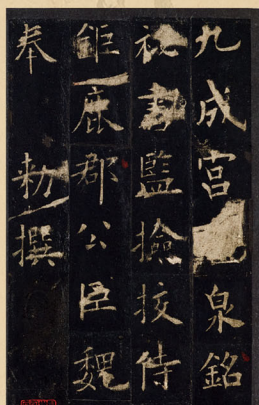 九成宮泉銘
祕書監撿挍侍
鉅鹿郡公臣魏
奉 勑撰